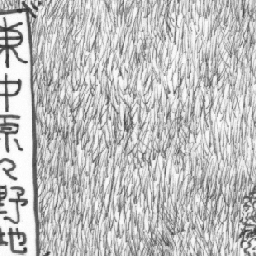 東中原々野地